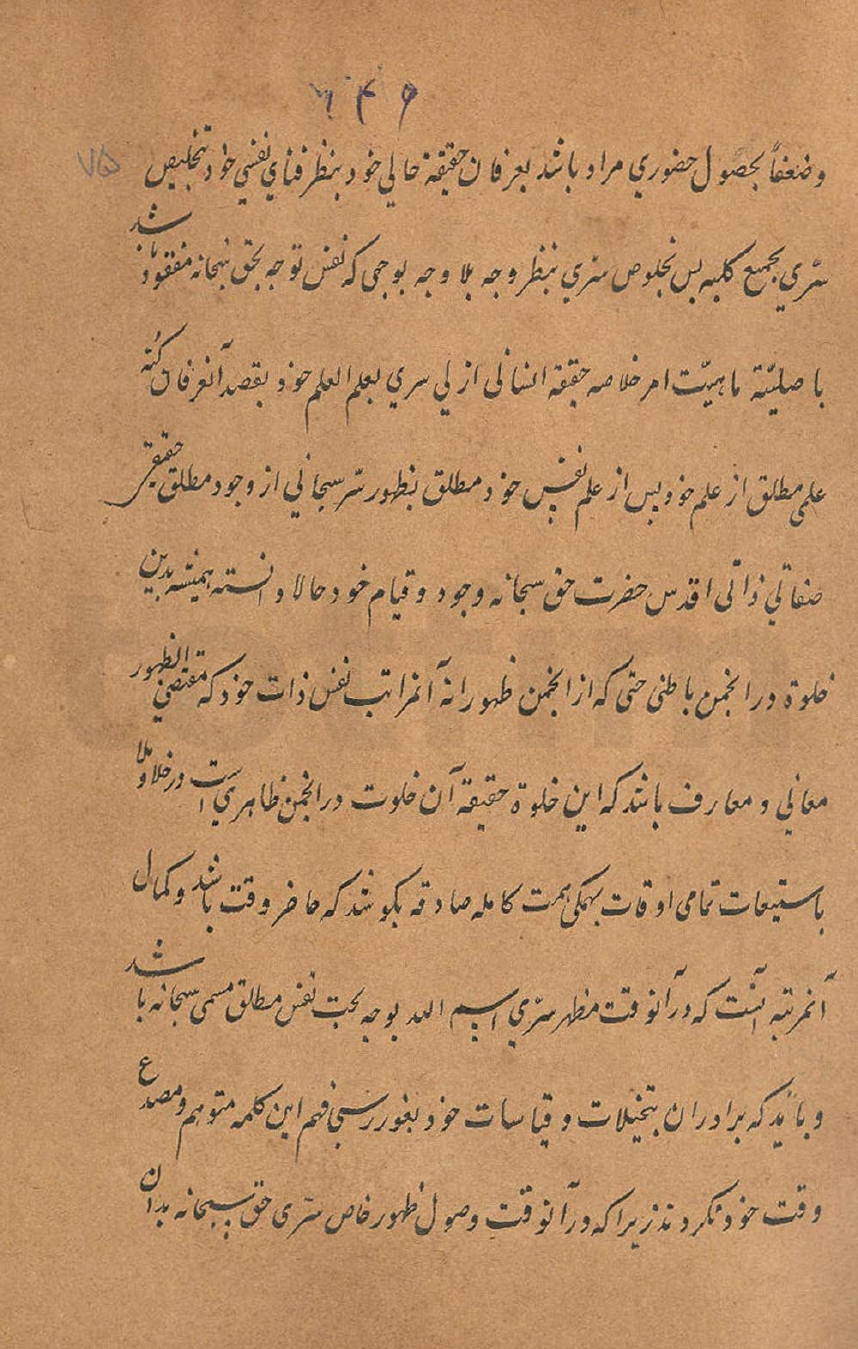 ۶۴۹
۷۵
وضعفاً بحصول حضوري مراد باشد بعرفان حقيقة حالي خود بنظر فناي نفسي خود بتخليص
سرّي بجميع كلبه پس بخلوص سرّي بنظر وجه بلا وجه بوجهي كه نفس توجه بحق سبحانه مفقود باشد
باصليّة ماهيّت امر خلاصه حقيقة انساني ازلي سري بعلم العلم خود بقصد آنعرفان كُنه
علمي مطلق از علم خود پس از علم نفس خود مطلق بظهور سّر سبحاني از وجود مطلق حقيقي
صفاتي ذاتي اقدس حضرت حق سبحانه وجود و قيام خود حالا دانسته هميشه بدين
خلوة در انجمن باطني حتي كه از انجمن ظهورانه آنمراتب نفس ذات خود كه مقتضي الظهور
معاني و معارف باشد كه اين خلوة حقيقه آن خلوت در انجمن ظاهري است در خلا و ملا
باستيعات تمامي اوقات بهمگي همت كامله صادقه بكوشد كه حاضر وقت باشد و كمال
آنمرتبه آنست كه درآنوقت مظهر سرّي اسم الله بوجه بحت نفس مطلق مسمي سبحانه باشد
و بايد كه برادران بتخيلات و قياسات خود بغور رسي فهم اين كلمه متوهم و مصدع
وقت خود نكردند زيرا كه درآنوقت وصول ظهور خاص سرّي حق سبحانه بدان